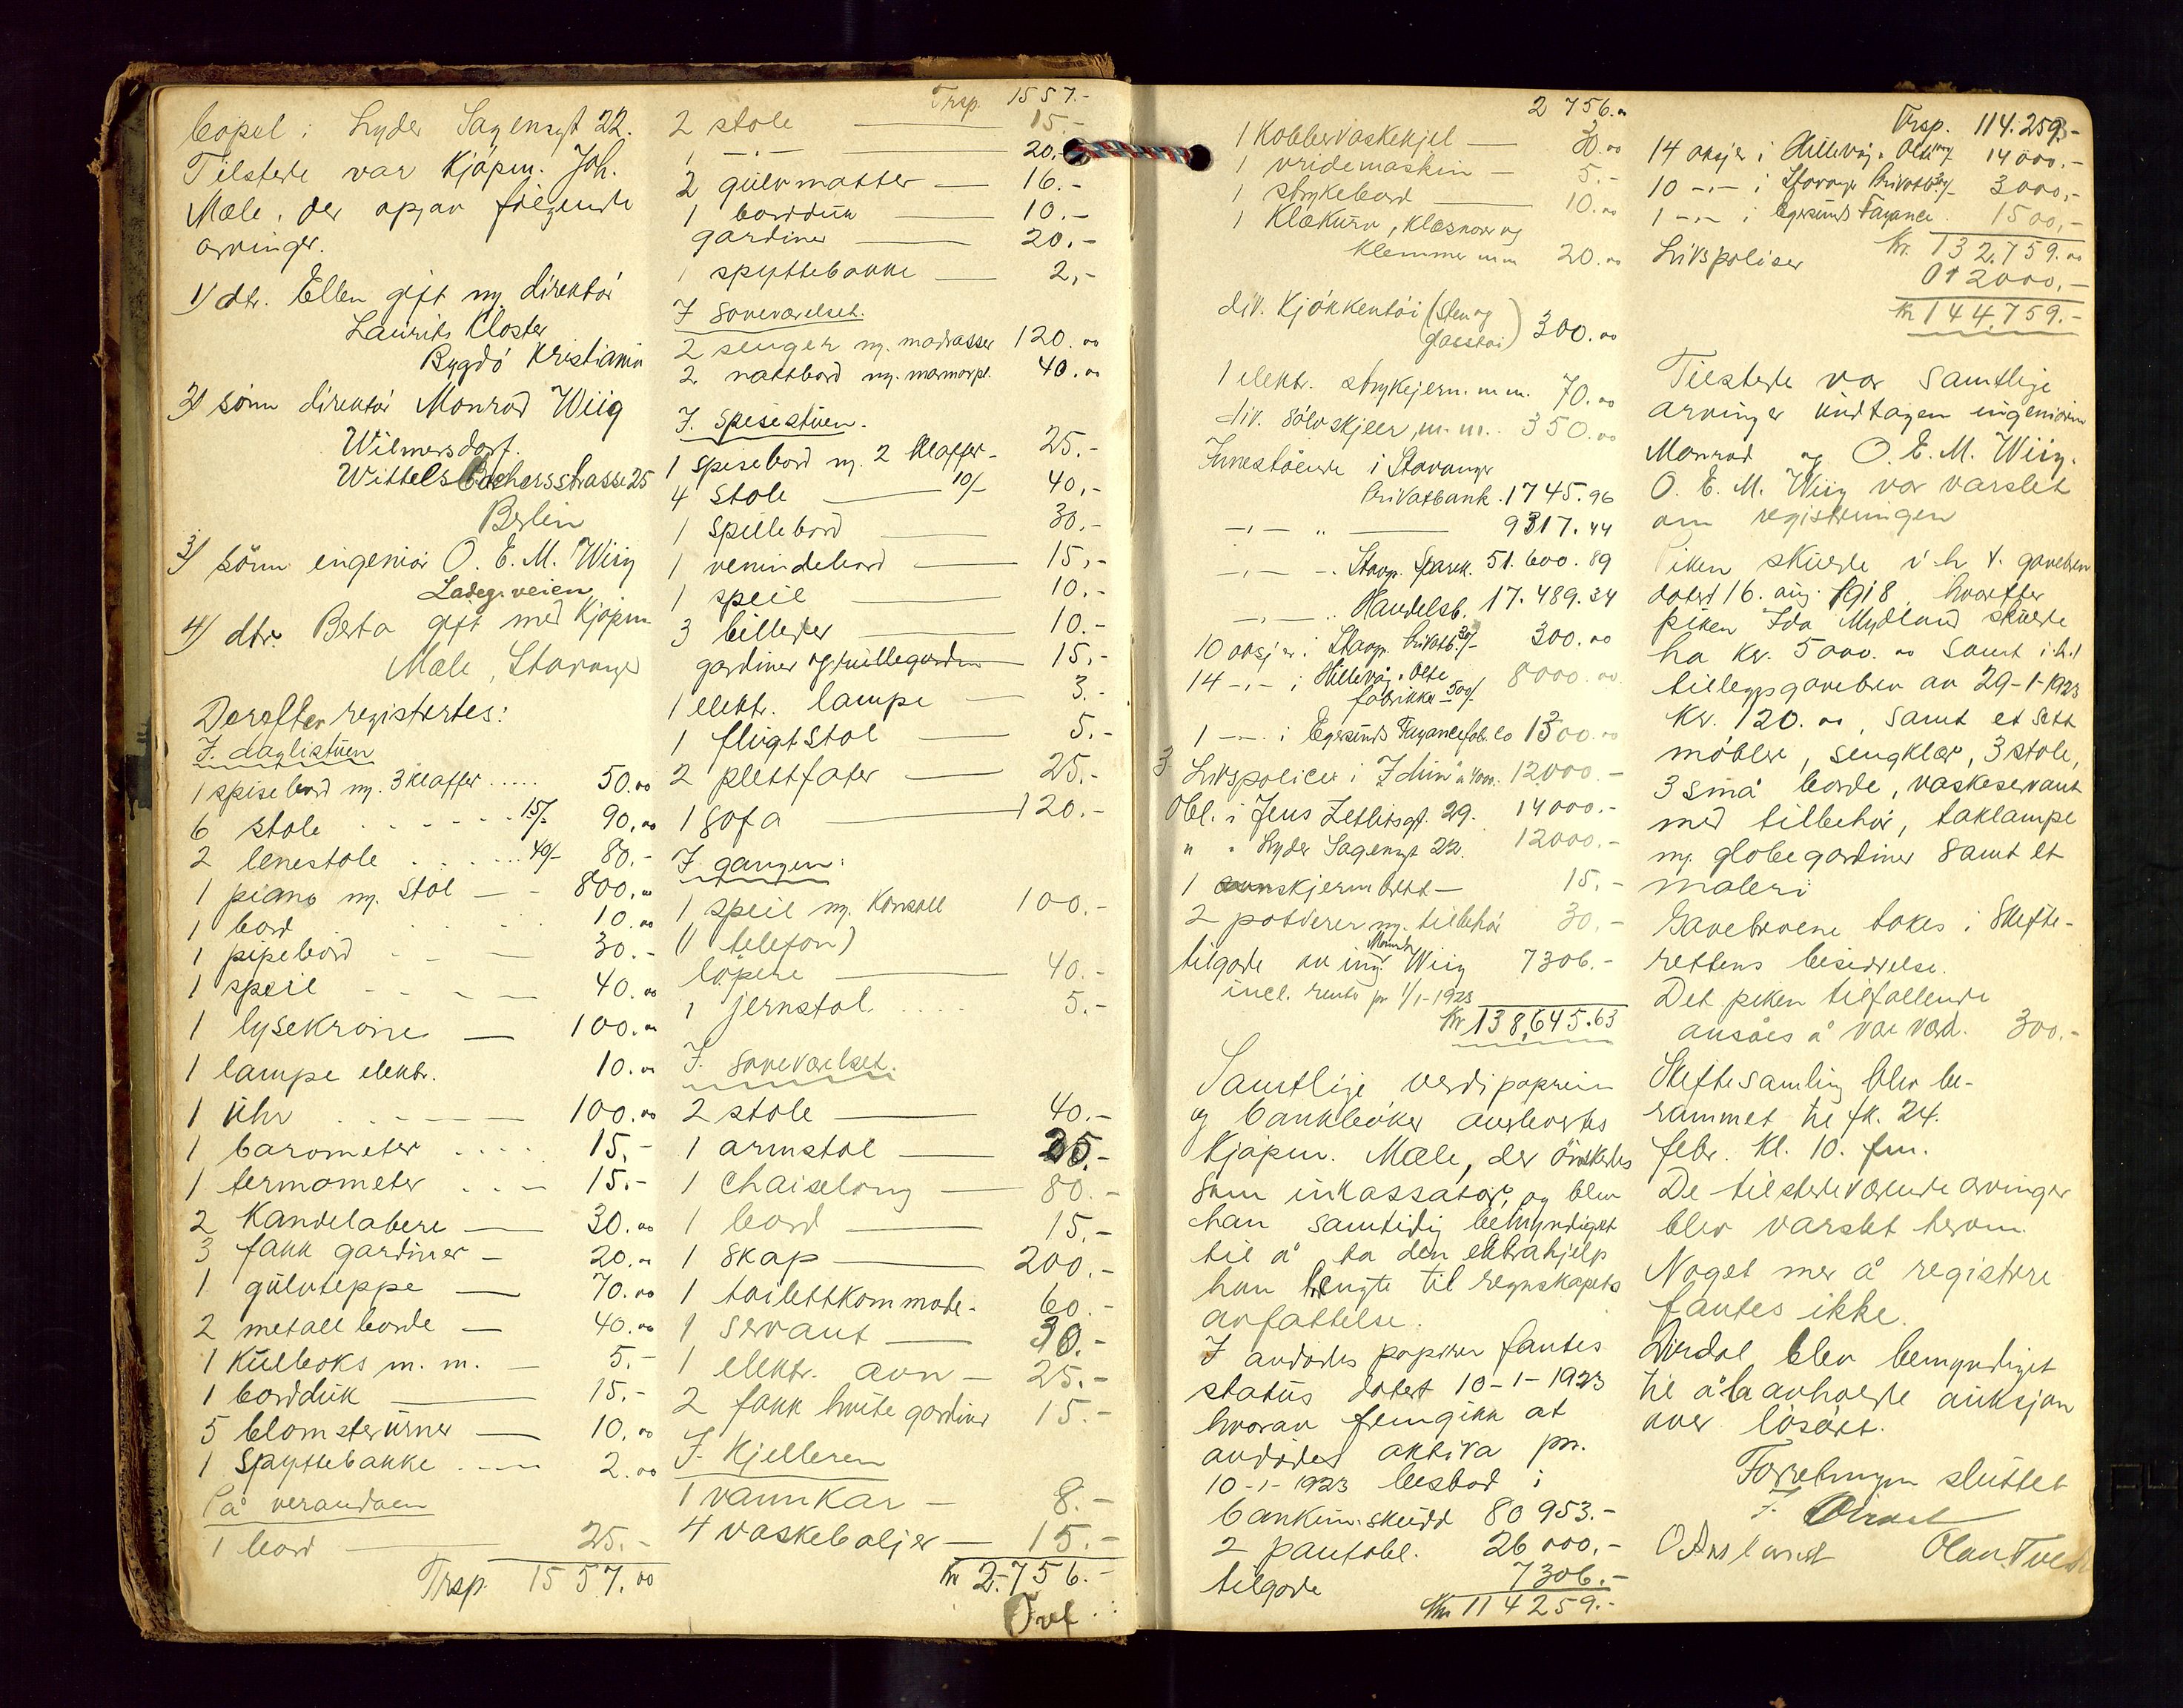 bopel i Lyder Sagensgt 22.
Tilstede var Kjøpm. Joh.
Mæle, der opgav følgende
arvinger.
1) dtr. Ellen gift m. direktør
Laurits Kloster
Bygdø Kristiania
2) sønn direktør Monrad Wiig
Wilmersdorf.
Wittelsbachersstrasse 25
Berlin
3) sønn ingeniør O. E. M. Wiig
Ladeg. veien
4) dtr. Berta gift med Kjøpm
Mæle, Stavanger
Derefter registrertes:
I. daglistuen
1 spisebord m. 3 klaffer ..... 50.00
6 stole 15/- 90.00
2 lenestole 40/- 80.-
1 piano m. stol — - 800.00
1 bord 10.00
1 pipebord 30.-
1 speil 40.00
1 lysekrone — 100.00
1 lampe elektr. 10.00
1 Uhr 100.00
1 barometer .... 15.-
1 termometer 15.-
2 Kandelabere — 30.00
3 fakk gardiner - 20.00
1 gulvteppe — 70.00
2 metall borde — 40.00
1 Kulboks m. m. - 5.-
1 bordduk — 15.-
5 blomsterurner — 10.00
1 Spyttebakke 2.00
På verandaen
1 bord — 25.-
Trsp. 1557.00
Trsp. 1557.-
2 stole — 15.-
1 -.- — 20.-
2 gulvmatter — 16.-
1 bordduk — 10.-
gardiner — 20.-
1 spyttebakke — 2,-
I soveværelset.
2 senger m. madrasser 120.00
2 nattbord m. marmorpl. 40.00
I. spisestuen.
1 spisebord m. 2 klaffer - 25.-
4 stole — 10/- 40,-
1 spillebord — 30.-
1 venindebord — 15,-
1 speil — 10.-
3 billeder — 10.-
gardiner og rullegardin — 15,-
1 elektr. lampe — 3.-
1 flugtstol — 5.-
2 plettfater — 25.-
1 sofa — 120.-
I gangen:
1 speil m. konsoll 100.-
(1 telefon)
løpere — 40.-
1 jernstol .... 5.-
I. soveværelset.
2 stole — 40.-
1 armstol — 35.-
1 Chaiselong — 80.-
1 bord — 15.-
1 skap — 200.-
1 toilettkommode - 60.-
1 servant — 30.-
1 elektr. ovn — 25.-
2 fakk hvite gardiner 15.-
I. Kjelleren
1 vannkar — 8.-
4 vaskebaljer — 15.-
Kr 2.756.-
Ovf.
2 756.00
1 Kobbervaskekjel — 30.00
1 vridemaskin — 5.-
1 strykebord — 10.00
1 Klækurv, klæsnorer og
klemmer m m 20.00
div. Kjøkkentøi (sten og
glasstøi) 300.00
1 elektr. strykejern. m m. 70.00
div. sølvskjeer, m. m. . 350.00
Innestående i Stavanger
Privatbank. 1745.96
-.- „ — 9317.44
-.- -. Stavgr. Sparek. 51.600.89
-.- . Handelsb. 17.489.34
10 aksjer i Stavgr. Privatb. 30/- 300.00
14 -.- i Hillevåg Olje
fabrikker 500/- 8000.00
1 -.- i Egersunds Fayancefabr. Co 1500.00
3 Livspolicer i Idun à 4000. 12.000.-
Obl. i Jens Zetlitsgt. 29. 14000.-
„ „ Lyder Sagensgt 22. 12000.-
1 skjermbrett — 15.-
2 potterer m. tilbehør 30.-
tilgode av ing. Monrad Wiig 7306.-
incl. rente pr 1/1-1923
Kr 138,645.63
Samtlige verdipapirer
og bankbøker anslvertes
Kjøpm. Mæle, der ønskedes
som inkassator, og blev
han samtidig bemyndiget
til å ta den ekstrahjelp
han trengte til regnskapets
avfattelse.
I avdødes papirer fantes
status datert 10-1-1923
hvorav fremgikk at
avdødes aktiva pr.
10-1-1923 bestod i
bankinnskudd 80 953.-
2 pantobl. 26 000.-
tilgode 7306.-
Kr 114259.-
Trsp. 114.259.-
14 aksjer i Hillevåg Olje 14000.-
10 -.- i Stavanger Privatb. 3000,-
1 -.- i Egersunds Fayance. 1500,-
Kr. 132.759.00
Livspoliser 012000,-
Kr 144,759.-
Tilstede var samtlige
arvinger undtagen ingeniørene
Monrad og O. E. M. Wiig.
O. E. M. Wiig var varslet
om registreringen
Piken skulde i h. t. gavebrev
datert 16. aug. 1918, hvorefter
piken Ida Mydland skulde
ha kr. 5000.00 samt i h. t
tilleggsgavebrev av 29-1-1923
Kr. 120.00, samt et sett
møbler, sengklær, 3 stole,
3 små borde, vaskeservant
med tilbehør, taklampe
m. globegardiner samt et
maleri
Gavebrevene tokes i Skifte-
rettens besiddelse.
Det piken tilfallende
ansåes å være værd. 300.-
Skiftesamling blev be-
rammet til fk. 24.
febr. Kl. 10. fm.
De tilstedeværende arvinger
blev varslet herom.
Noget mer å registrere
fantes ikke.
Dirdal blev bemyndiget
til å la avholde auksjon
over løsøret.
Forretningen sluttet
F. Dirdal
O Aasland Olav Tveit